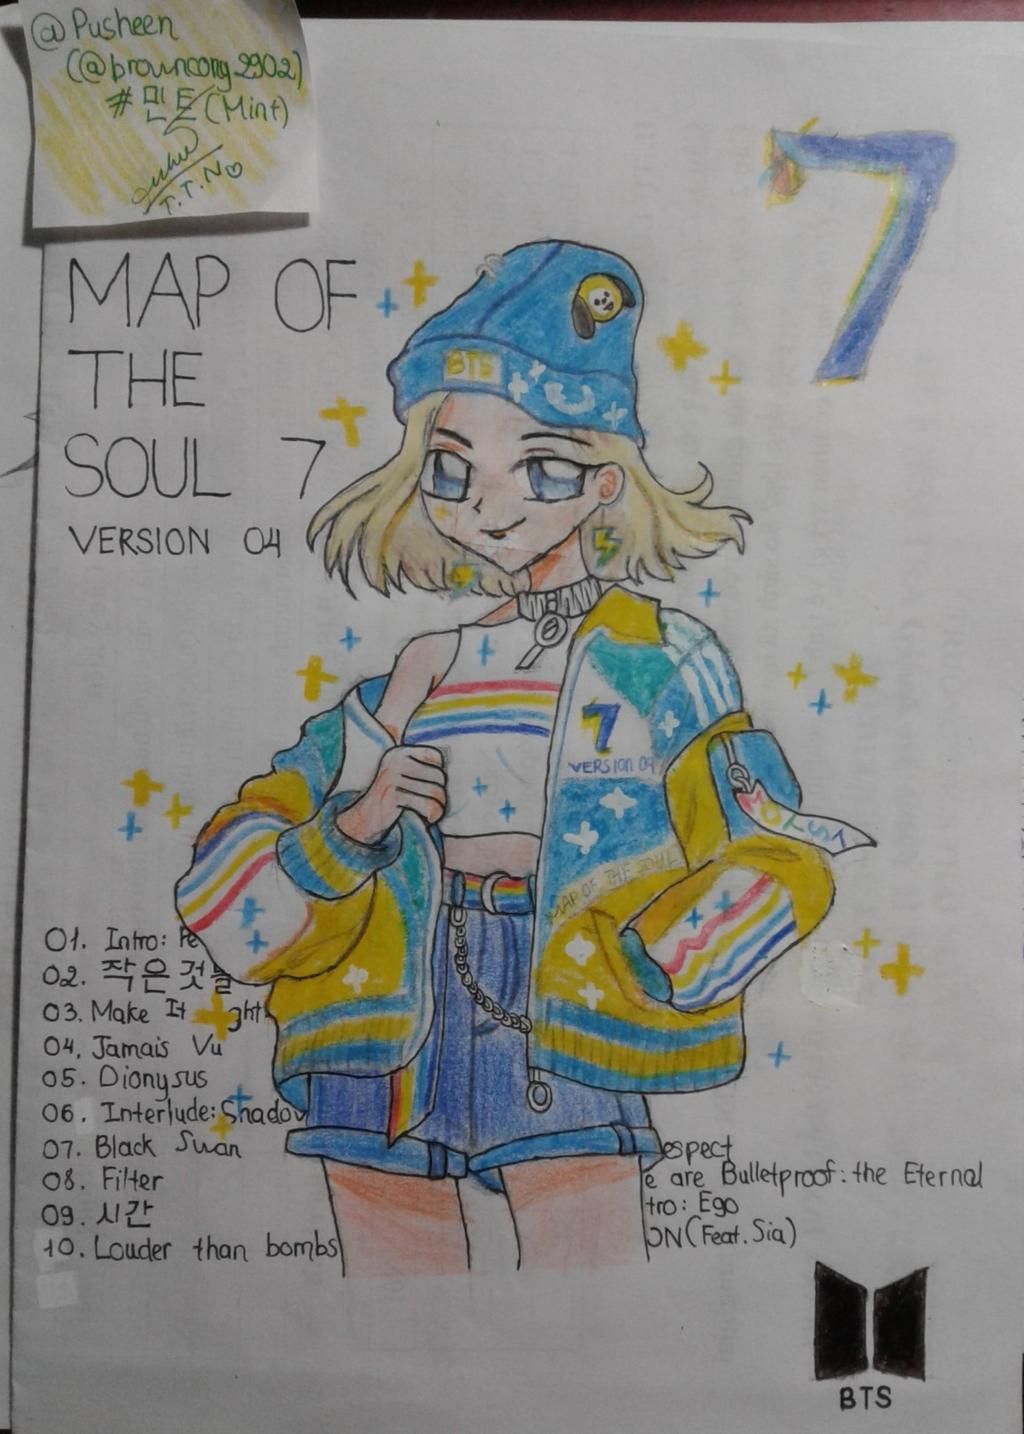 @Pusheen
(@browncony2902)
#민트(Mint)
T.T.N
7
MAP OF
THE
SOUL 7
VERSION 04
BTS
7
VERSION 04
MAP OF THE SOUL
01. Intro: Pe
02. 작은 것들
03. Make It ght
04. Jamais Vu
05. Dionysus
06. Interlude: Shadow
07. Black Swan
08. Filter
09. 시간
10. Louder than bombs
espect
e are Bulletproof: the Eternal
tro: Ego
ON (Feat. Sia)
BTS